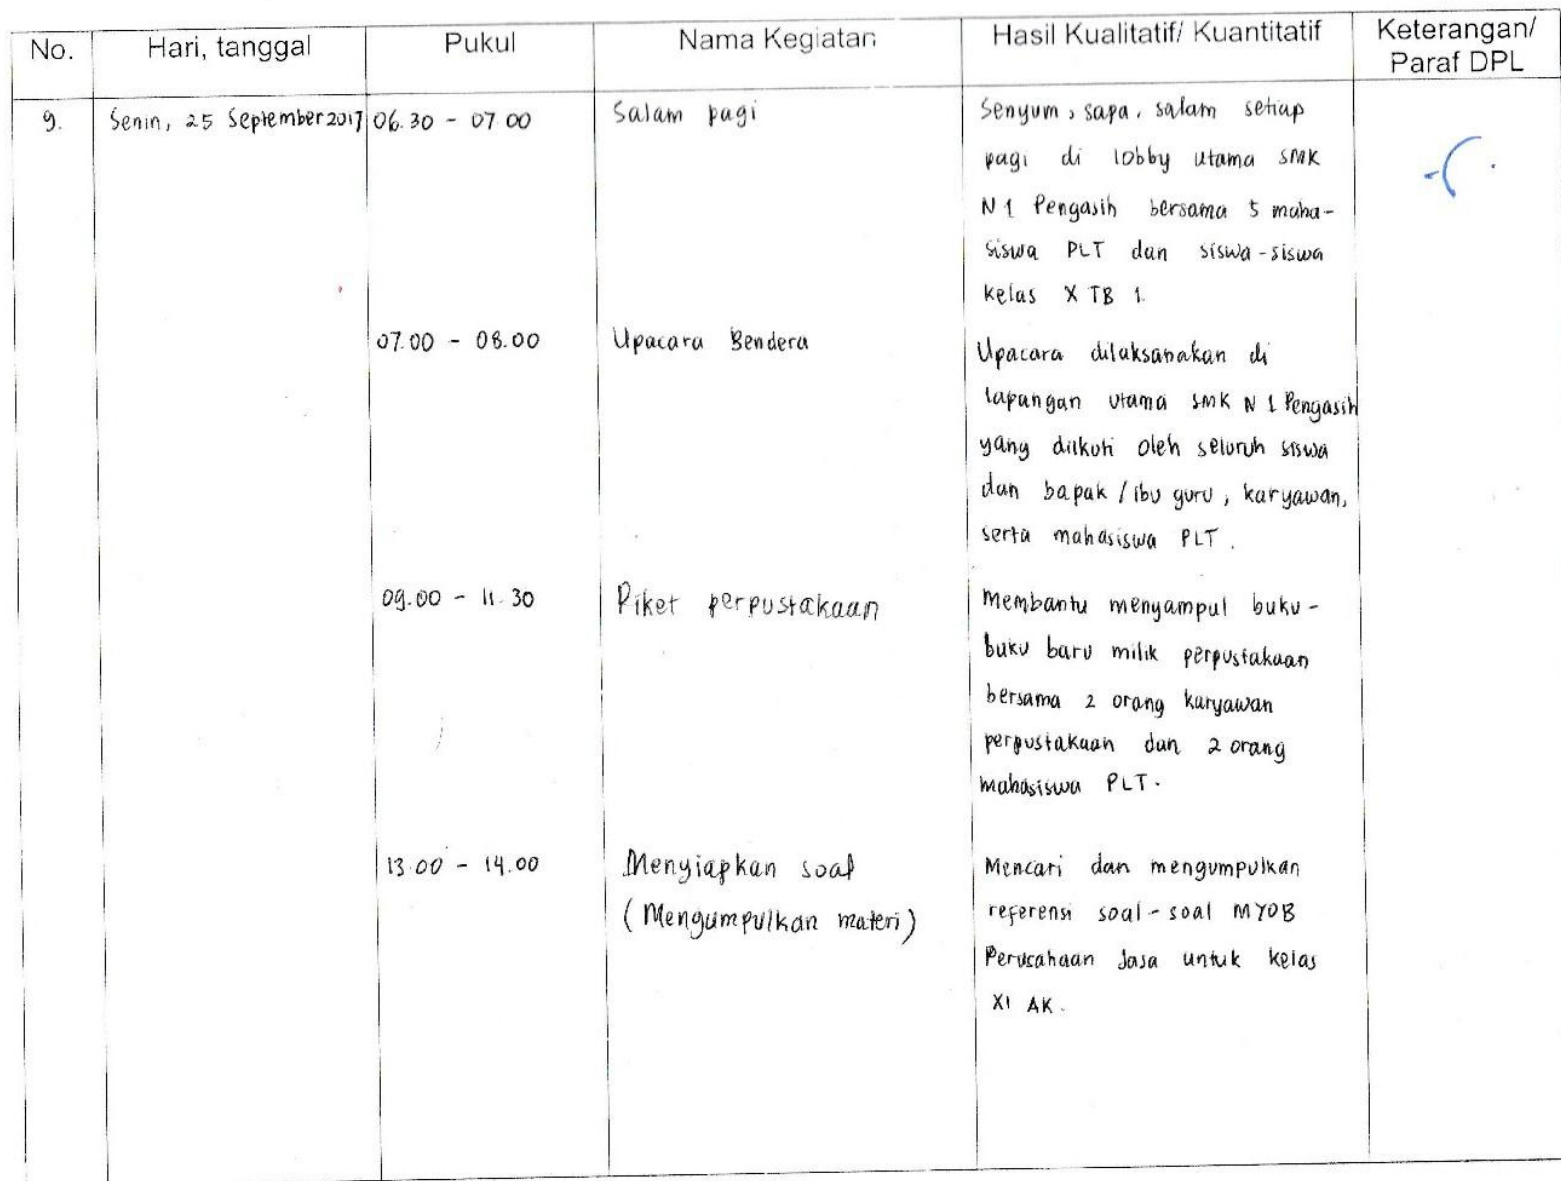 No. Hari, tanggal Pukul Nama Kegiatan Hasil Kualitatif/ Kuantitatif Keterangan/
Paraf DPL
9. Senin, 25 September 2017 06.30 - 07.00 Salam pagi Senyum, sapa, salam setiap
pagi di lobby utama SMK
N 1 Pengasih bersama 5 maha-
siswa PLT dan siswa-siswa
kelas X TB 1.
07.00 - 08.00 Upacara Bendera Upacara dilaksanakan di
lapangan utama SMK N 1 Pengasih
yang diikuti oleh seluruh siswa
dan bapak / ibu guru, karyawan,
serta mahasiswa PLT.
09.00 - 11.30 Piket perpustakaan Membantu menyampul buku-
buku baru milik perpustakaan
bersama 2 orang karyawan
perpustakaan dan 2 orang
mahasiswa PLT.
13.00 - 14.00 Menyiapkan soal Mencari dan mengumpulkan
(Mengumpulkan materi) referensi soal-soal MYOB
Perusahaan Jasa untuk kelas
XI AK.